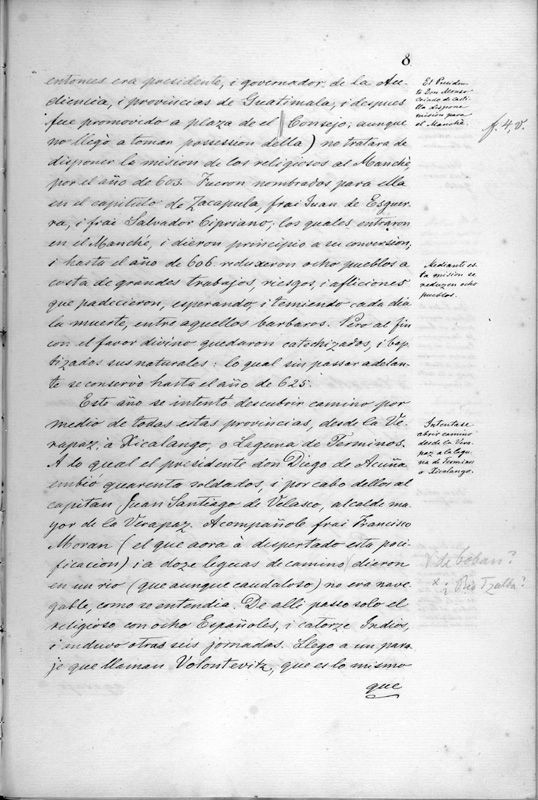 8
entonces era presidente, i governador, de la Au-
diencia, i provincias de Guatimala, i despues
fue promovido a plaza de el || Consejo, aunque
no llegò a tomar possession della) no tratara de
disponer la mision de los religiosos al Manchè
por el año de 603. Fueron nombrados para ella
en el capitulo de Zacapula, frai Juan de Esguer-
ra, i frai Salvador Cipriano; los quales entraron
en el Manché, i dieron principio a su conversion,
i hasta el año de 606 reduxeron ocho pueblos a
costa de grandes trabajos, riesgos, i afliciones
que padecieron, esperando, i temiendo cada dia
la muerte, entre aquellos barbaros. Pero al fin
con el favor divino quedaron catechizados, i bap-
tizados sus naturales: lo qual sin passar adelan-
te se conservò hasta el año de 625.
Este año se intentò descubrir camino por
medio de todas estas provincias, desde la Ve-
rapaz, a Xicalango, o Leguna de Terminos.
A lo qual el presidente don Diego de Acuña
embiò quarenta soldados, i por cabo dellos al
capitan Juan Santiago de Velasco, alcalde ma-
yor de la Verapaz. Acompañole frai Francisco
Moran (el que aora à despertado esta paci-
ficacion) i a doze leguas de camino dieron
en un rio (que aunque caudaloso) no era nave-
gable, como se entendia. De alli passo solo el
religioso con ocho Españoles, i catorze Indios,
i anduvo otras seis jornadas. Llego a un para-
je que llaman Volontevitz, que es lo mismo
que
El Presiden-
te Don Alonso
Criado de Casti-
lla dispone
mision para
el Manchè.
f. 4, v.
Mediante es-
ta mision se
reduzen ocho
pueblos.
Intentase
abrir camino
desde la Vera-
paz a la lagu-
na de Terminos
o Xicalango.
de Coban?
x ¿ Rio Tzalbá?